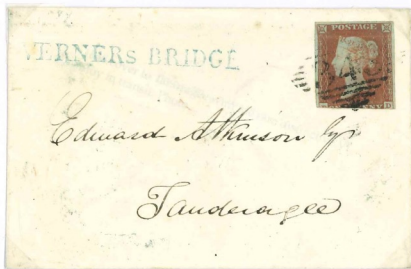 VERNERS BRIDGE
POSTAGE
Edward Atkinson Esqr
Tanderagee